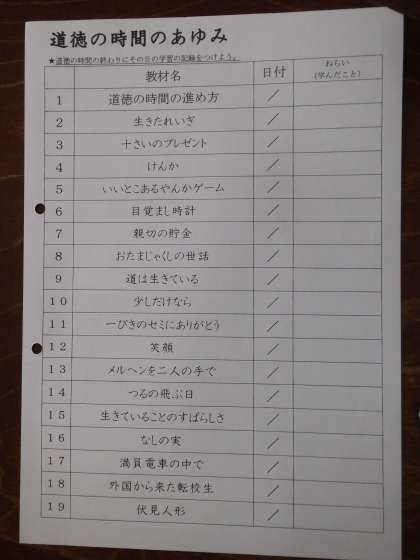 道徳の時間のあゆみ
★道徳の時間の終わりにその日の学習の記録をつけよう。
教材名 日付 ねらい
(学んだこと)
1 道徳の時間の進め方 /
2 生きたれいぎ /
3 十さいのプレゼント /
4 けんか /
5 いいとこあるやんかゲーム /
6 目覚まし時計 /
7 親切の貯金 /
8 おたまじゃくしの世話 /
9 道は生きている /
10 少しだけなら /
11 一ぴきのセミにありがとう /
12 笑顔 /
13 メルヘンを二人の手で /
14 つるの飛ぶ日 /
15 生きていることのすばらしさ /
16 なしの実 /
17 満員電車の中で /
18 外国から来た転校生 /
19 伏見人形 /